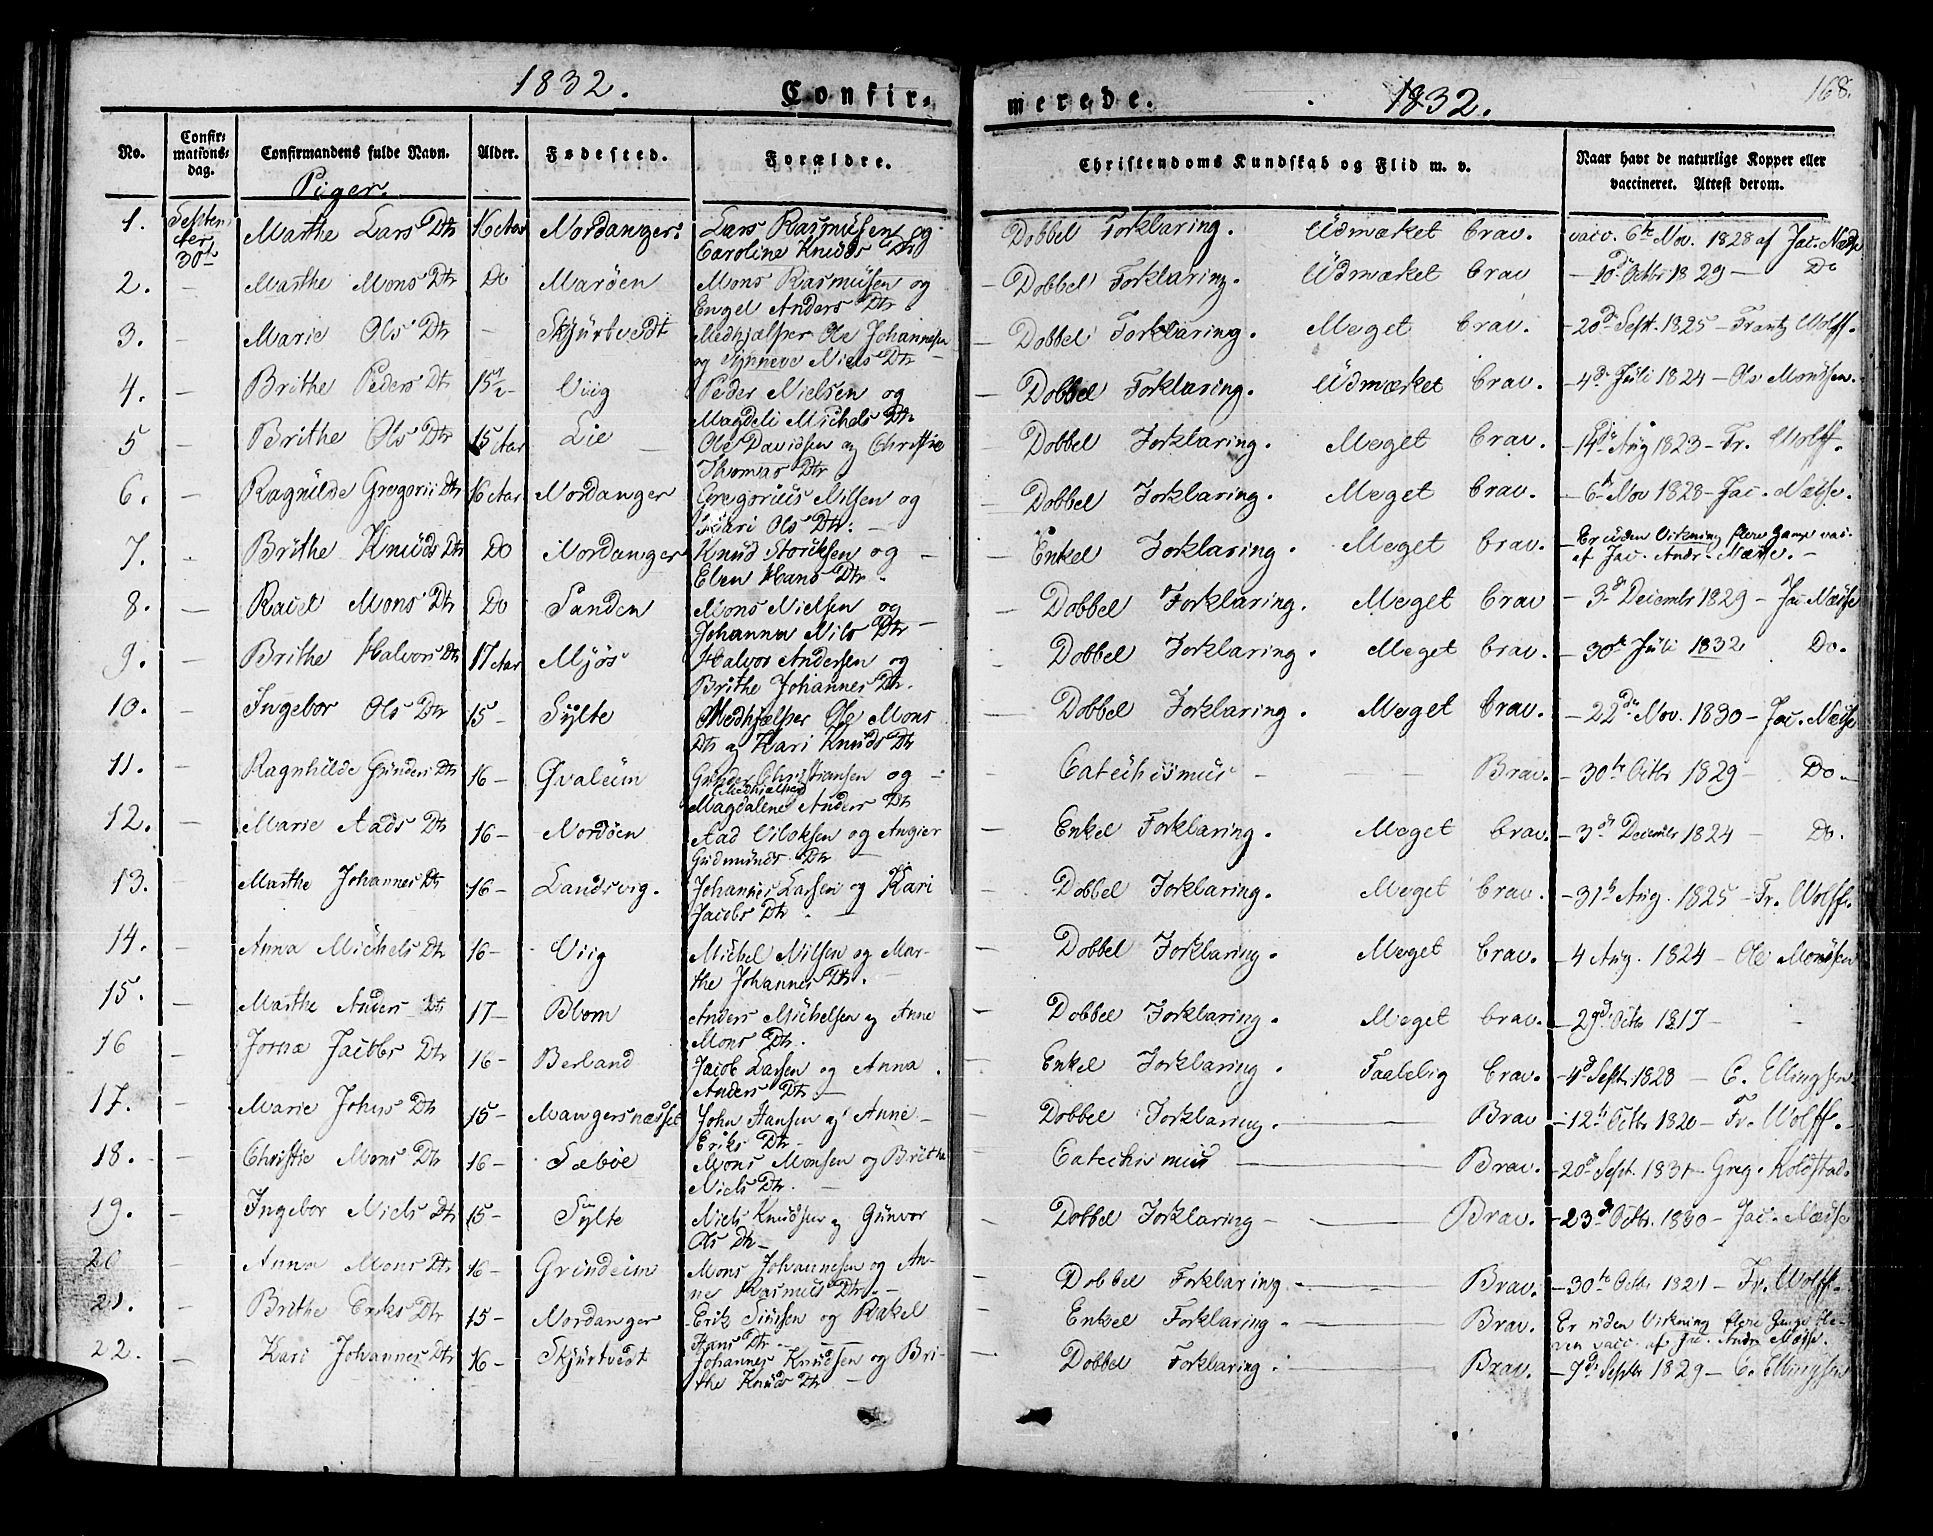 1832. Confir- merede. 1832. 168.
No. Confir-mations-dag. Confirmandens fulde Navn. Alder. Fødested. Forældre. Christendoms Kundskab og Flid m. v. Naar havt de naturlige Kopper eller vaccineret. Attest derom.
Piger.
1. Septem- Marthe Lars Dtr 16 Aar Nordanger: Lars Rasmüsen og Dobbel Forklaring. Üdmærket brav. vacc. 6te Nov. 1828 af Jac. Næsse
ber 30te Caroline Knuds Dtr
2. – Marthe Mons Dtr Do Marøen Mons Rasmüsen og – Dobbel Forklaring. Üdmærket brav – 10de Octbr 1829 – Do
Engel Anders Dtr
3. – Marie Ols Dtr – Skjürtvedt Medhjælper Ole Johannesen – Dobbel Forklaring. Meget brav. – 20de Sept. 1825 – Frantz Wolff.
og Synneve Niels Dtr –
4. – Brithe Peders Dtr 15 1/2 Viig Peder Nielsen og – Dobbel Forklaring. Üdmærket brav. – 4de Jüli 1824 – Ole Monsen.
Magdeli Michels Dtr
5 – Brithe Ols Dtr 15 Aar Lie – Ole Davidsen og Christie – Dobbel Forklaring. Meget brav. – 14de Aug 1823 – Fr. Wolff.
Thomas Dtr
6. – Ragnilde Gregorii Dtr 16 Aar Nordanger Gregorius Nilsen og – Dobbel Forklaring. Meget brav. – 6te Nov 1828 – Jac. Næsse.
Kari Ols Dtr. –
7. – Brithe Knuds Dtr Do Nordanger Knud Storksen og – – Enkel Forklaring. Meget brav. – Er uden Virkning flere Gange vac.
Elen Hans Dtr. af Jac. Andr. Næsse. –
8. – Racel Mons Dtr Do Sanden Mons Nielsen og – Dobbel Forklaring. Meget brav – 3de Decembr 1829 – Jac Næsse
Johanna Nils Dtr –
9. – Brithe Halvors Dtr 17 Aar Mjøs Halvor Andersen og – Dobbel Forklaring. Meget brav. – 30te Jüli 1832 Do.
Brithe Johannes Dtr.
10. – Ingebor Ols Dtr 15 – Sylte Medhjælper Ole Mons – Dobbel Forklaring. Meget brav. – 22de Nov. 1830 – Jac. Næsse
Dtr og Kari Knuds Dtr
11. – Ragnhilde Gunders Dtr 16 – Qvaleim Gunder Christiansen og – – Catechismus – – – Brav. – 30te Octbr 1829 – Do –
Magdalene Anders Dtr
12. – Marie Aads Dtr 16 – Nordøen Aad Viloksen og Angier – Enkel Forklaring. Meget brav. – 3de Decembr 1824 – Do.
Gudmunds Dtr –
13. – Marthe Johannes Dtr 16 – Landsvig. Johannes Larsen og Kari – Dobbel Forklaring. Meget brav. – 31te Aug. 1825 – Fr. Wolff.
Jacobs Dtr. –
14. – Anna Michels Dtr 16 – Viig Michel Nilsen og Mar- – Dobbel Forklaring. Meget brav. – 4 Aug. 1824 – Ole Monsen
the Johannes Dtr. –
15. – Marthe Anders Dtr 17 – Blom Anders Michelsen og Anne – Dobbel Forklaring. Meget brav. – 29de Octbr 1817 –
Mons Dtr.
16 – Jorna Jacobs Dtr 16 – Berland Jacob Larsen og Anna – Enkel Forklaring. Taalelig brav. – 4de Sept. 1828 – C. Ellingsen
Anders Dtr –
17. – Marie Johns Dtr 15 – Mangersnæsset John Hansen og Anne – – Dobbel Forklaring. – Brav – 12te Octbr 1820 – Fr. Wolff. –
Eriks Dtr –
18. – Christie Mons Dtr 16 – Sæbøe Mons Monsen og Brithe – Catechismus – Brav. – 20de Sept. 1831 – Greg. Koldstad
Niels Dtr. –
19. – Ingebor Niels Dtr 15 – Sylte Niels Knudsen og Gunvor – Dobbel Forklaring – Brav. – 23de Octbr. 1830 – Jac. Næsse
Ols Dtr –
20 – Anna Mons Dtr 16 – Grindeim Mons Johannesen og An- – Dobbel Forklaring. – Brav. – 30te Octbr 1821 – Fr. Wolff.
ne Rasmus Dtr. –
21. – Brithe Eriks Dtr 15 – Nordanger Erik og Rakel – Enkel Forklaring. – Brav. – Er uden Virkning flere Gange
Hans Dtr – vacc. af Jac. Andr. Næsse.
22. – Kari Johannes Dtr 16 – Skjürtvedt Johannes Knudsen og Bri- – Dobbel Forklaring. – Brav. – 7de Septbr 1829 – C. Ellingsen
the Knuds Dtr –